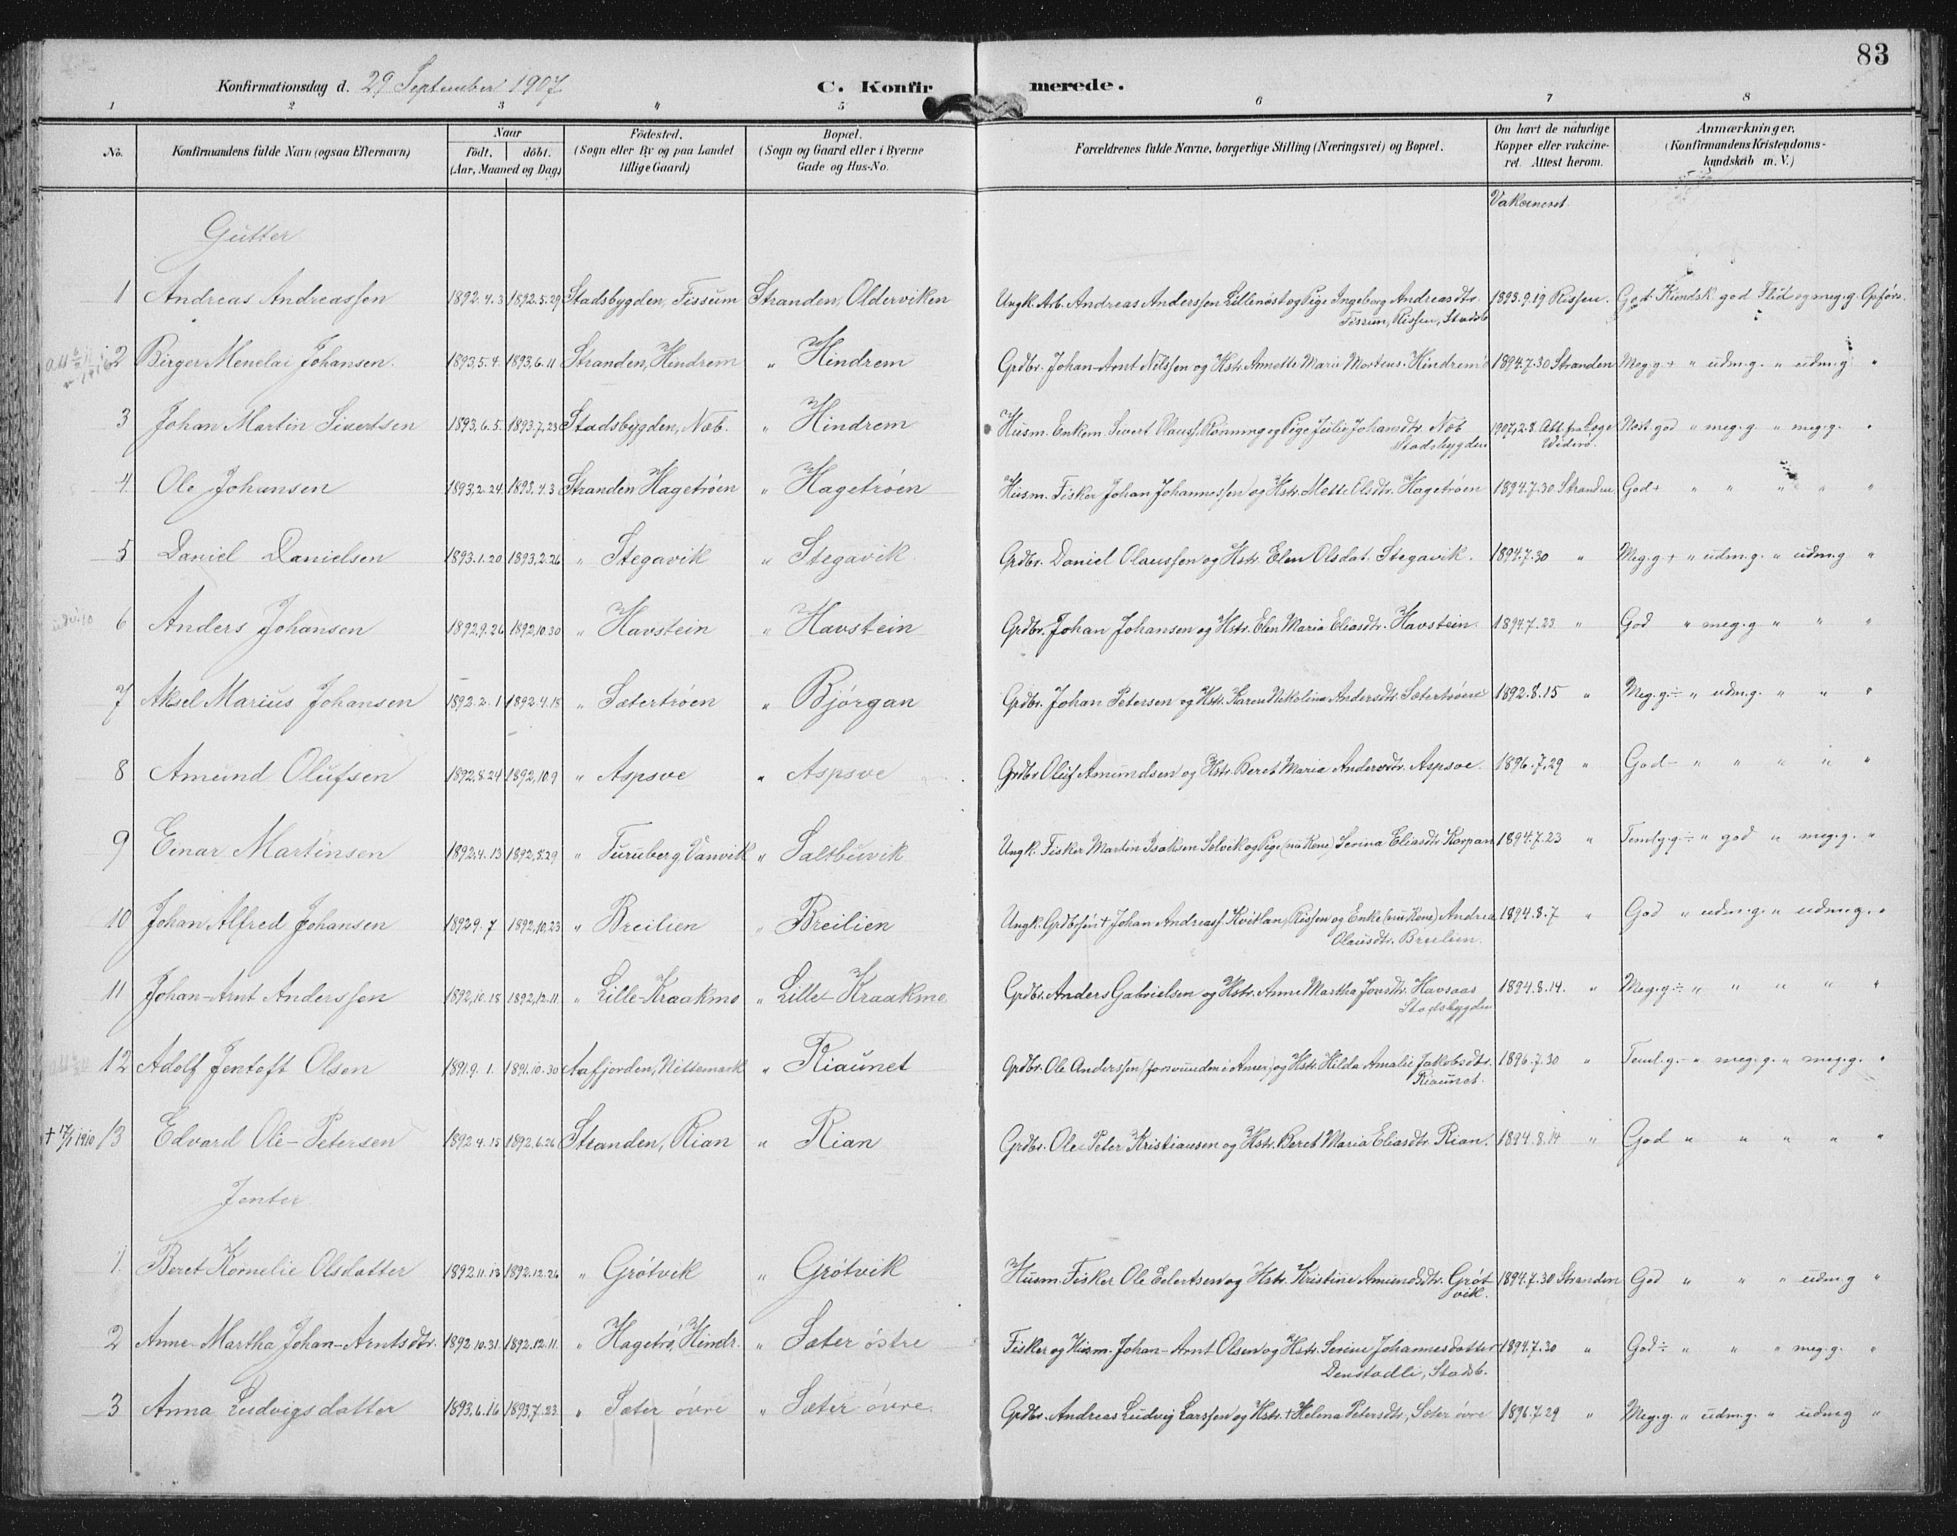 83
Konfirmationsdag d. 29 September 1907
C. Konfir merede.
1 2 3 " 5 6 7 8
No. Konfirmandens fulde Navn (ogsaa Efternavn) Naar født, døbt. (Aar, Maaned og Dag) Fødested. (Sogn eller By og paa Landet tillige Gaard) Bopæl. (Sogn og Gaard eller i Byerne Gade og Hus-No. Forældrenes fulde Navne, borgerlige Stilling (Næringsvei) og Bopæl. Om havt de naturlige Kopper eller vakcineret. Attest herom. Anmærkninger. (Konfirmandens Kristendomskundskab m. V.)
Vakcineret.
Gutter
1 Andreas Andreassen 1892.4.3 1892.5.29 Stadsbygden, Fissum Stranden, Olderviken Ungk. Arb. Andreas Anderssen Lillenøst og Pige Ingeborg Andreasdtr. 1893.9.19 Rissen. God Kundsk. god Flid og meg. g. Opførs.
Fissum, Rissen, Stadsb.
2 Birger Menelai Johansen. 1893.5.4. 1893.6.11 Stranden, Hindrem " Hindrem Grdbr. Johan-Arnt Nilssen og Hstr. Annette Marie Mortens. Hindrem 1894.7.30 Stranden Meg. g + " udm. g. " udm. g "
3 Johan Martin Sivertsen 1893.6.5. 1893.7.23 Stadsbygden, Næb. " Hindrem Husm. Enkem. Sivert Olauss. Rønning og Pige Julie Johansdtr. Næb 1907.2.8. Att. fra Læge Næst. god " meg. g " meg. g. "
Stadsbygden Widerø.
4. Ole Johansen 1893.2.24 1893.4.3 Stranden Hagetrøen " Hagetrøen Husm. Fisker Johan Johannessen og Hstr. Mette Olsdtr. Hagetrøen 1894.7.30. Stranden God + " " " " "
5 Daniel Danielsen 1893.1.20 1893.2.26 " Stegavik " Stegavik Grdbr. Daniel Olaussen og Hstr. Elen Olsdat. Stegavik. 1894.7.30 " Meg. g + " udm. g. " udm. g "
6 Anders Johansen 1892.9.26 1892.10.30 " Havstein " Havstein Grdbr. Johan Johansen og Hstr. Elen Maria Eliasdtr. Havstein. 1894.7.23 " God " meg. g " " "
7 Aksel Marius Johansen 1892.2.1 1892.4.18 " Sætertrøen " Bjørgan Grdbr. Johan Petersen og Hstr. Karen Nikolina Andersdtr. Sætertrøen 1892.8.15 " Meg. g. ÷ " udm. g. " " "
8 Amund Olufsen 1892.8.24 1892.10.9 " Aspsve " Aspsve Grdbr. Oluf Amundsen og Hstr. Beret Maria Andersdtr. Aspsve. 1896.7.29 " God - " " " "
9 Einar Martinsen 1892.4.13 1892.8.29 " Furuberg, Vanvik " Saltbuvik Ungk. Fisker Martin Isaksen Selvik og Pige (nu Kone) Serina Eliasdtr Korpan 1894.7.23 " Teml. g. ÷ " god " meg. g. "
10 Johan Alfred Johansen 1892.9.7 1892.10.23 " Breilien " Breilien Ungk. Grdbrsøn + Johan Andreass. Kvitlan, Rissen og Enke (nu Kone) Andrea 1894.8.7 " God " udm. g. " udm. g. "
Olausdtr. Breilien.
11 Johan-Arnt Anderssen 1892.10.18 1892.12.11. " Lille-Kraakmo " Lille-Kraakmo Grdbr. Anders Gabrielsen og Hstr. Anne Martha Jonsdtr. Havsaas 1894.8.14. " Meg. g. ÷ " " " " "
Stadsbygden
12 Adolf Jentoft Olsen 1891.9.1. 1891.10.30 Aafjorden, Nittemark " Riaunet Grdbr. Ole Anderssen (forsvunden i Amer.) og Hstr. Hilda Amalie Jakobsdtr. 1896.7.30 " Teml. g. - " meg. g. " meg. g. "
Riaunet.
+ 17/1 1910 13 Edvard Ole-Petersen 1892.4.15 1892.6.26 Stranden, Rian " Rian Grdbr. Ole Peter Kristiansen og Hstr. Beret Maria Eliasdtr. Rian. 1894.8.14 " God " " " " "
Jenter
1. Beret Kornelie Olsdatter 1892.11.13 1892.12.26 " Grøtvik " Grøtvik Husm. Fisker Ole Eilertsen og Hstr. Kristine Amundsdtr. Grøt 1894.7.30 Stranden God " " " udm. g "
vik.
2 Anne-Martha Johan-Arntsdtr. 1892.10.31 1892.12.11. " Hagetrø, Hindr. " Sæter østre Fisker og Husm. Johan-Arnt Olsen og Hstr. Serine Johannesdatter 1894.7.30 " God ÷ " " " meg. g. "
Denstadli, Stadsb.
3 Anna Ludvigsdatter 1893.6.16 1893.7.23. " Sæter øvre " Sæter øvre. Grdbr. Andreas Ludvig Larssen og Hstr. + Helena Petersdtr, Sæter øvre 1896.7.29 " Meg. g. " udm. g. " udm. g "